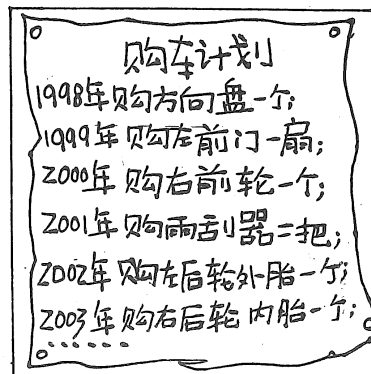 购车计划
1998年购方向盘一个;
1999年购左前门一扇;
2000年购右前轮一个;
2001年购雨刮器二把;
2002年购左后轮外胎一个;
2003年购右后轮内胎一个;
......